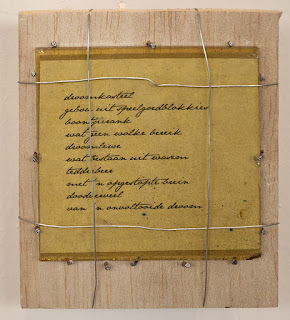 droomkasteel
gebou uit speelgoedblokkies
boontjierank
wat geen wolke bereik
droomlewe
wat bestaan uit wasem
teddiebeer
met 'n opgestopte brein
doodsweet
van 'n onvoltooide droom